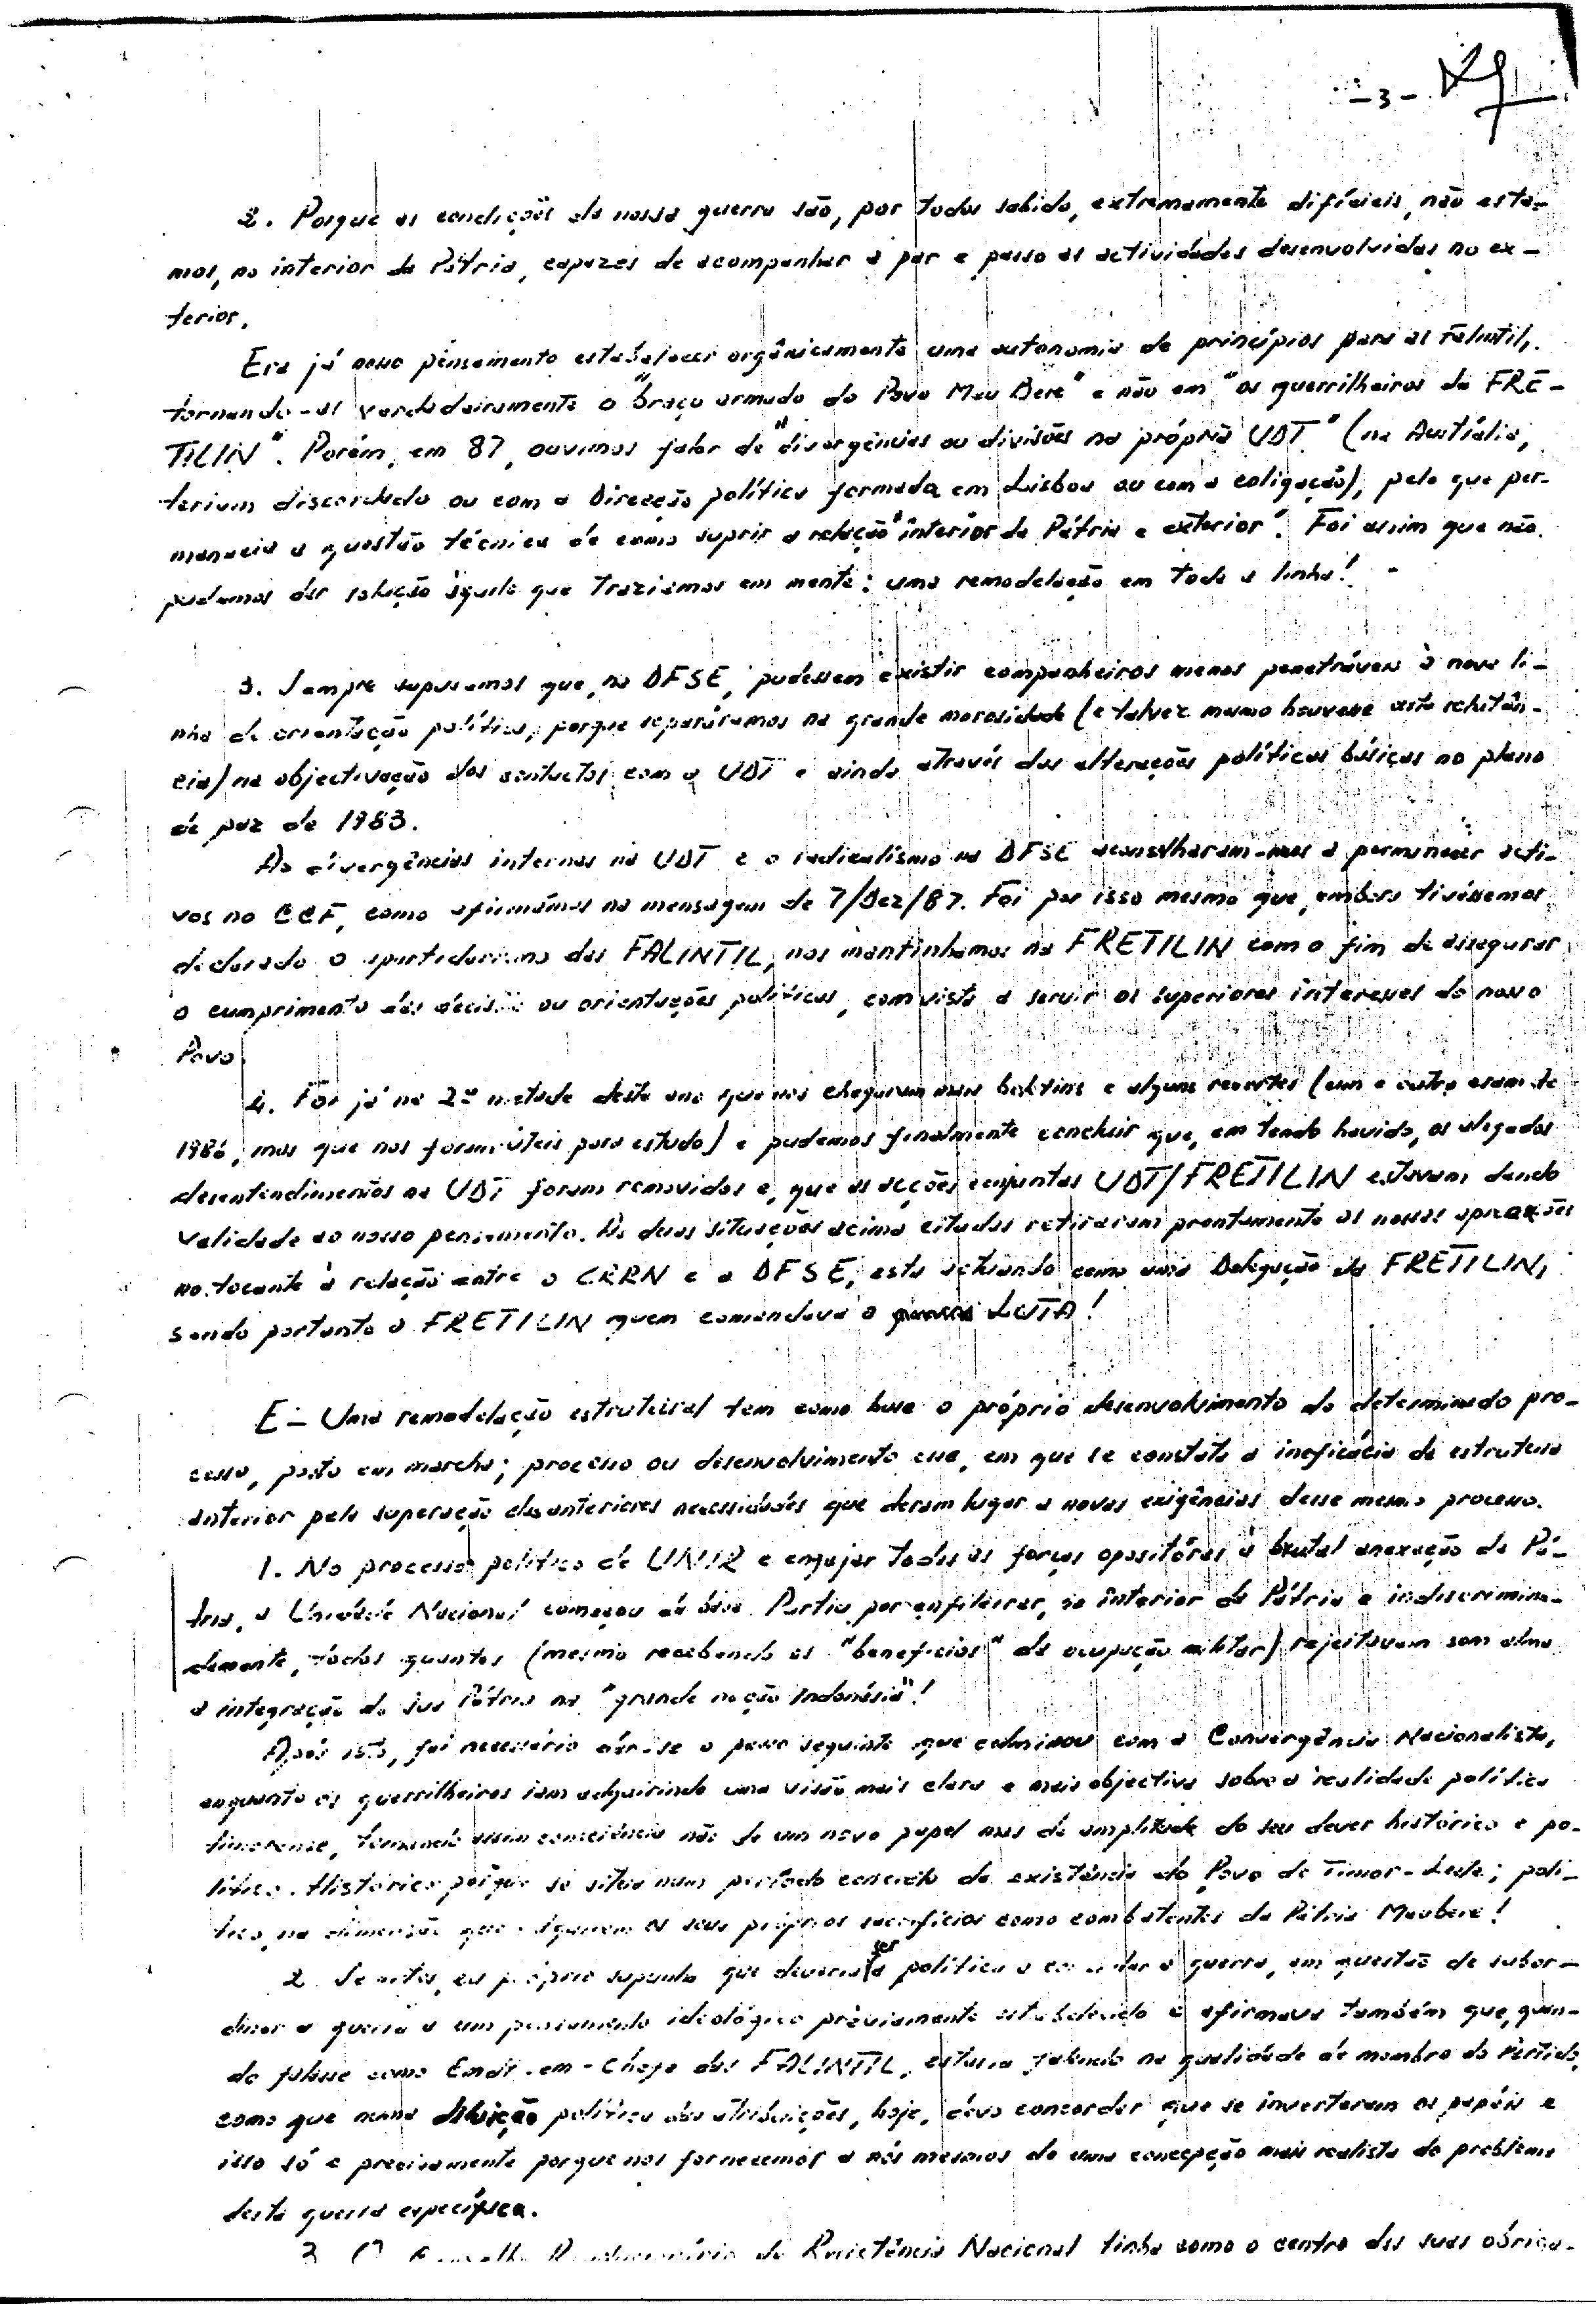 - 3 -
2. Porque as condições da nossa guerra são, por todos sabido, extremamente difíceis, não esta-
mos, no interior da Pátria, capazes de acompanhar a par e passo as actividades desenvolvidas no ex-
terior.
Era já nosso pensamento estabelecer orgânicamente uma autonomia de princípios para as Falintil,
tornando-as verdadeiramente o "braço armado do Povo Mau Bere" e não em "os guerrilheiros da FRE-
TILIN". Porém, em 87, ouvimos falar de "divergências ou divisões na própria UDT" (na Austrália,
teriam discordado ou com a Direcção política formada em Lisboa ou com a coligação), pelo que per-
manecia a questão técnica de como suprir a relação "interior da Pátria e exterior". Foi assim que não
pudemos dar solução àquilo que trazíamos em mente: uma remodelação em toda a linha!
3. Sempre supusemos que, na DFSE, pudessem existir companheiros menos penetráveis à nova li-
nha de orientação política, porque reparáramos na grande morosidade (e talvez mesmo houvesse certa relutân-
cia) na objectivação dos contactos com a UDT e ainda através das alterações políticas básicas no plano
de paz de 1983.
As divergências internas na UDT e o radicalismo na DFSE aconselharam-nos a permanecer acti-
vos no CCF, como afirmámos na mensagem de 7/Dez/87. Foi por isso mesmo que, embora tivéssemos
declarado o apartidarismo das FALINTIL, nos mantínhamos na FRETILIN com o fim de assegurar
o cumprimento das decisões ou orientações políticas, com vista a servir os superiores interesses do nosso
Povo.
4. Foi já na 2ª metade deste ano que nos chegaram mais boletins e alguns recortes (um e outro eram de
1986, mas que nos foram úteis para estudo) e pudemos finalmente concluir que, em tendo havido, os alegados
desentendimentos na UDT foram removidos e, que as acções conjuntas UDT/FRETILIN estavam dando
validade ao nosso pensamento. As duas situações acima citadas retiraram prontamente as nossas apreensões
no tocante à relação entre o CRRN e a DFSE, esta actuando como uma Delegação da FRETILIN,
sendo portanto a FRETILIN quem comandava a LUTA!
E - Uma remodelação estrutural tem como base o próprio desenvolvimento do determinado pro-
cesso, posto em marcha; processo ou desenvolvimento esse, em que se constata a ineficácia da estrutura
anterior pela superação das anteriores necessidades que deram lugar a novas exigências desse mesmo processo.
1. No processo político de UNIR e engajar todas as forças opositoras à brutal anexação da Pá-
tria, a Unidade Nacional começou da base. Partiu por enfileirar, no interior da Pátria e indiscrimina-
damente, todos quantos (mesmo recebendo os "benefícios" da ocupação militar) rejeitavam com alma
a integração da sua Pátria na "grande nação Indonésia"!
Após isto, foi necessário dar-se o passo seguinte que culminou com a Convergência Nacionalista,
enquanto os guerrilheiros iam adquirindo uma visão mais clara e mais objectiva sobre a realidade política
timorense, tomando assim consciência não de um novo papel mas da amplitude do seu dever histórico e po-
lítico. Histórico porque se situa num período concreto da existência do Povo de Timor-Leste; polí-
tico, na dimensão que adquirem os seus próprios sacrifícios como combatentes da Pátria Maubere!
2. Se antes, eu próprio supunha que deveria ser a política a comandar a guerra, em questão de subor-
dinar a guerra a um pensamento ideológico prèviamente estabelecido e afirmava também que, quan-
do falasse como Cmdt.-em-Chefe das FALINTIL, estaria falando na qualidade de membro do Partido,
como que numa diluição política das atribuições, hoje, devo concordar que se inverteram os papéis e
isso só e precisamente porque nos fornecemos a nós mesmos de uma concepção mais realista do problema
desta guerra específica.
3. O Conselho Revolucionário da Resistência Nacional tinha como o centro das suas obriga-